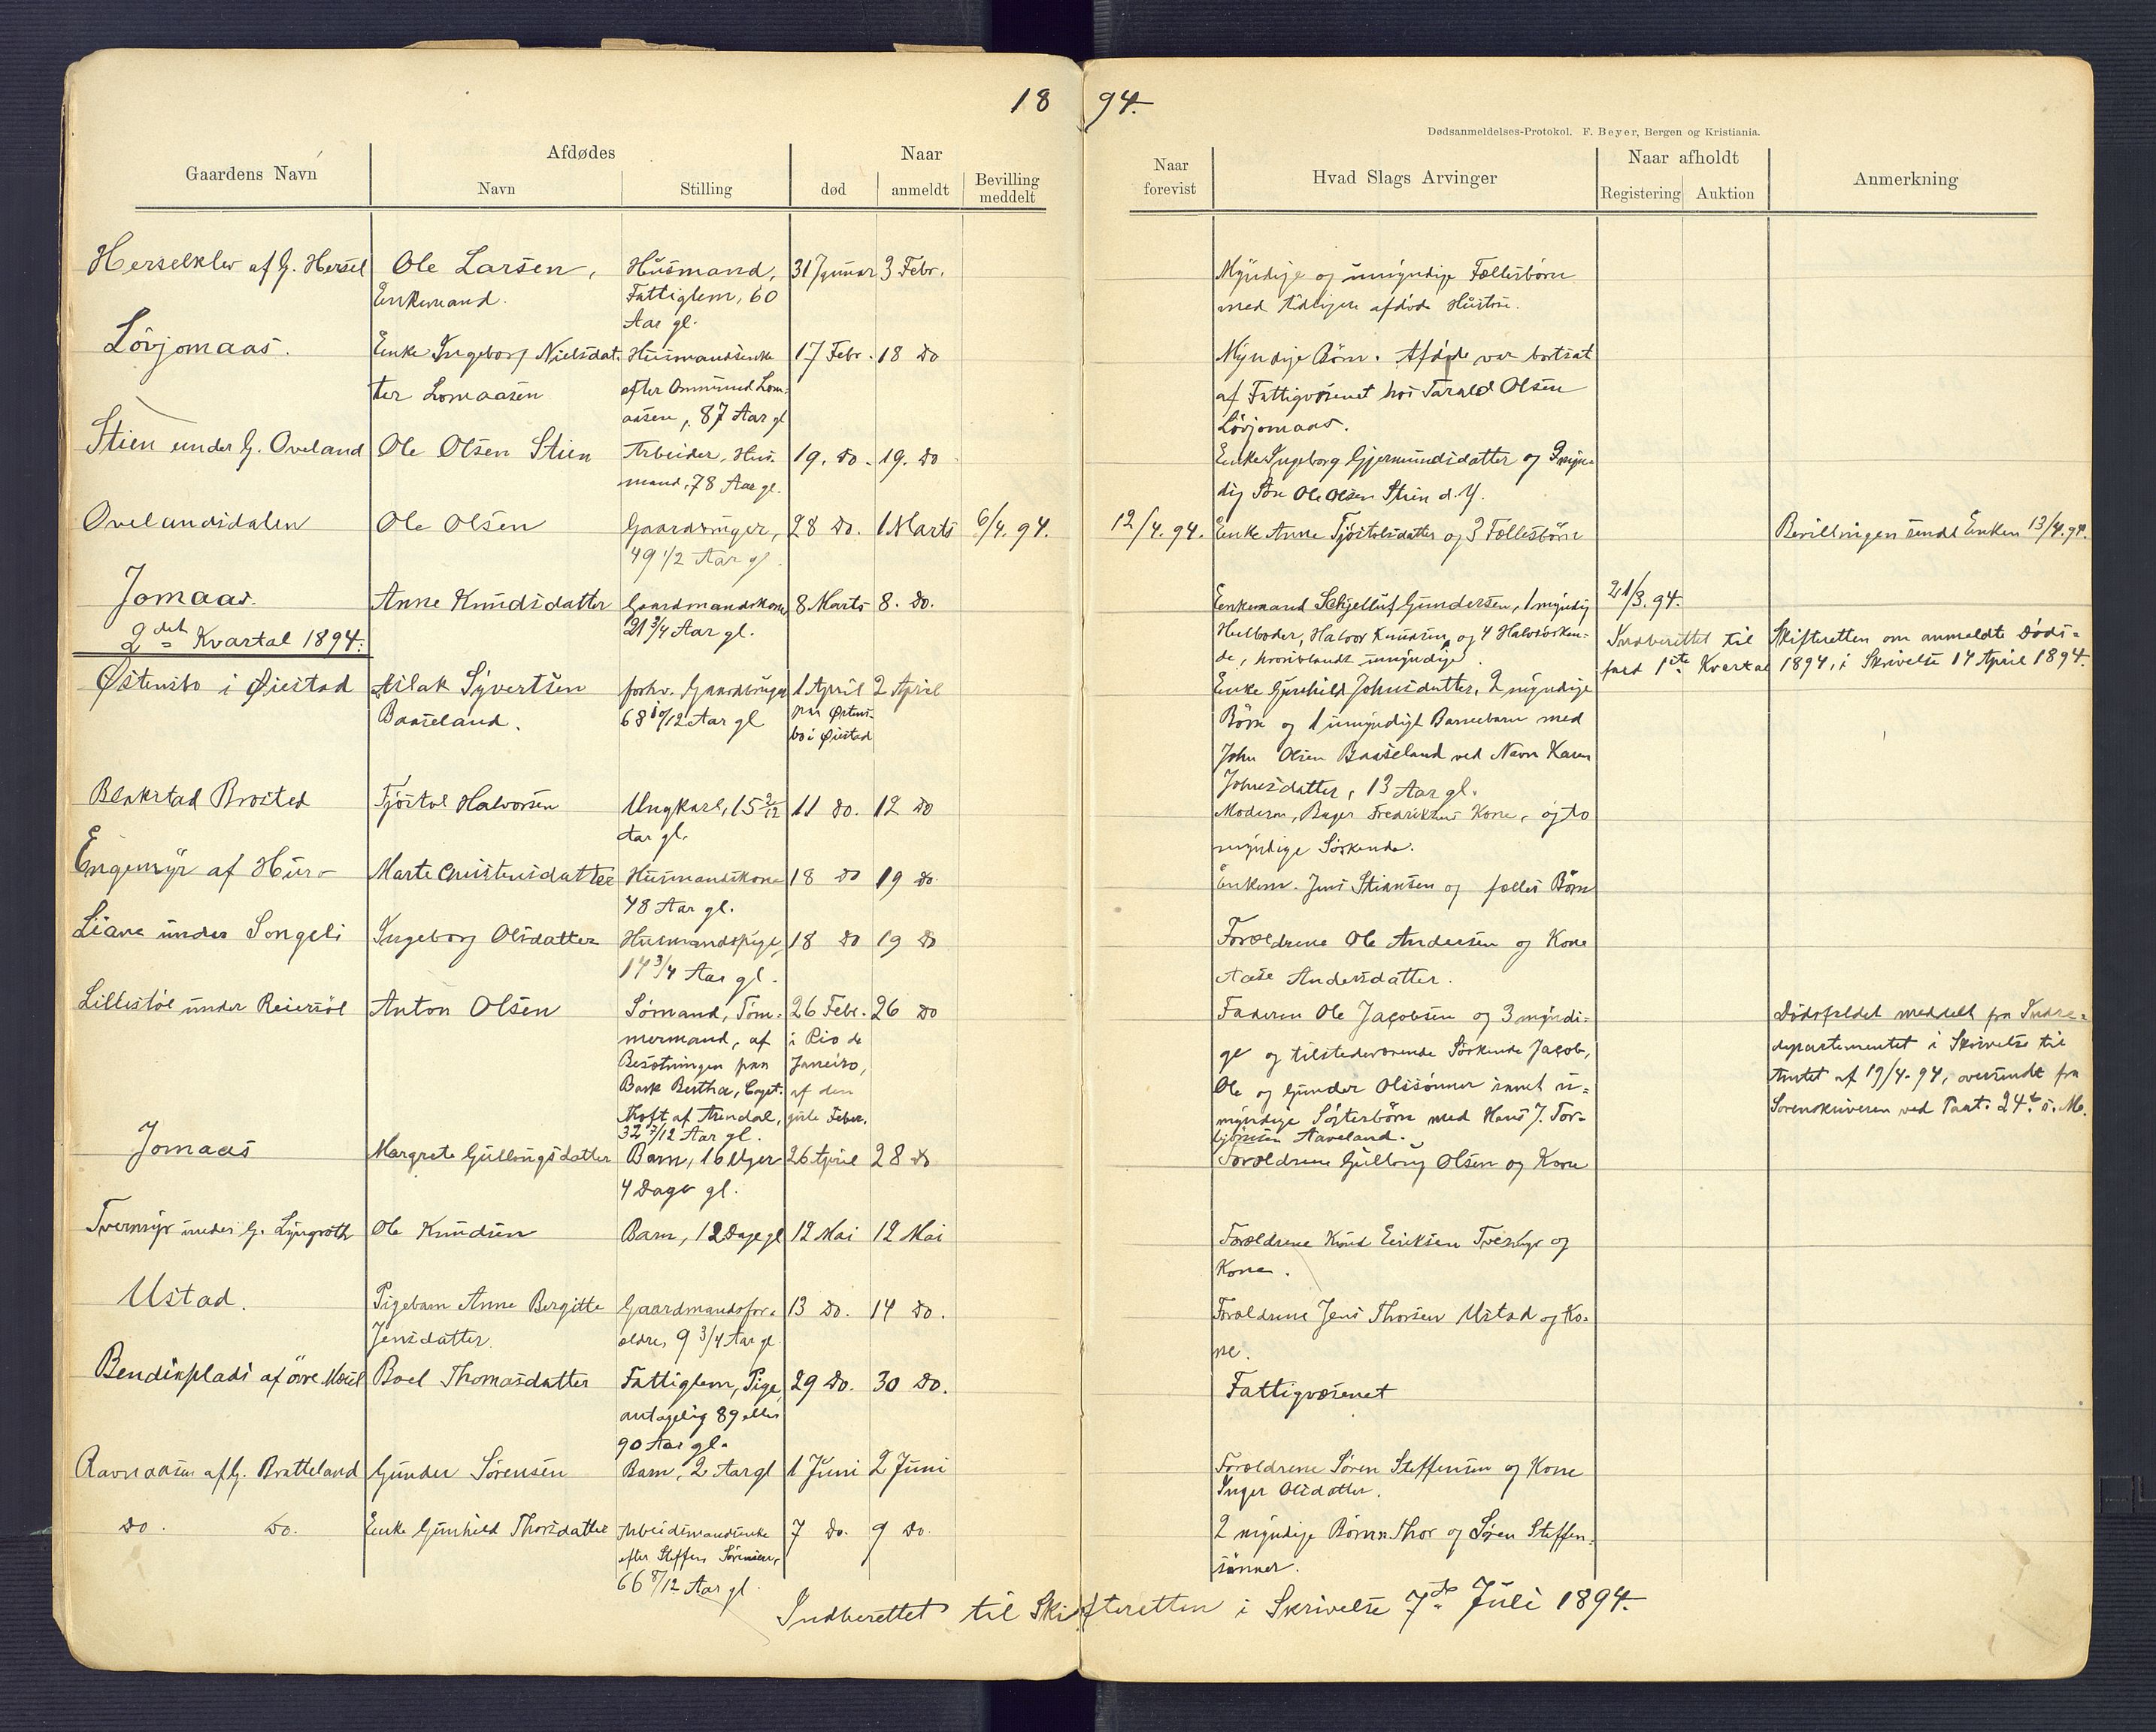 18 94.
Dødsanmeldelses-Protokol. F. Beyer, Bergen og Kristiania.
Gaardens Navn
Afdødes
Navn
Stilling
Naar
død
anmeldt
Bevilling
meddelt
Naar
forevist
Hvad Slags Arvinger
Naar afholdt
Registering
Auktion
Anmerkning
Herselklev af G. Hersel
Ole Larsen,
Enkemand.
Husmand,
Fattiglem, 60
Aar gl.
31 Januar
3 Febr.
Myndige og umyndige Fællesbörn
med tidligere afdøde Hustru.
Lövjomaas.
Enke Ingeborg Nielsdat-
ter Lomaasen
Husmandsenke
efter Ommund Lom-
aasen, 87 Aar gl
17 Febr.
18 Do
Myndige Börn. Afdøde var bortsat
af Fattigvæsenet hos Tarald Olsen
Lövjomaas.
Stien under G. Oveland
Ole Olsen Stien
Arbeider, Hus-
mand, 78 Aar gl.
19. Do.
19. Do
Enke Ingeborg Gjermundsdatter og myn-
dig Søn Ole Olsen Stien d.Y.
Ovelandsdalen
Ole Olsen
Gaardbruger,
49 1/2 Aar gl.
28 Do.
1 Marts
6/4. 94.
12/4. 94.
Enke Anne Tjöstolsdatter og 3 Fællesbörn
Bevillingen sendt Enken 13/4. 94.
Jomaas.
Anne Knudsdatter
Gaardmandskone
21 3/4 Aar gl.
8 Marts
8. Do.
Enkemand Schjelluf Gundersen, 1 myndig
Helbroder, Halvor Knudsen, og 4 Halvsösken-
de, hvoriblandt umyndige.
21/3. 94.
2det Kvartal 1894:
Indberettet til Skifteretten om anmeldte Döds-
fald 1ste Kvartal 1894, i Skrivelse 14 April 1894.
Østensbo i Øiestad
Aslak Syvertsen
Baaseland.
forhv. Gaardbruger
68 10/12 Aar gl
1 April
paa Østens-
bo i Øiestad
2 April
Enke Gunhild Johnsdatter, 2 myndige
Börn og 1 umyndigt Barnebarn med
John Olsen Baaseland ved Navn Karen
Johnsdatter, 13 Aar gl.
Blakstad Brosted
Tjöstol Halvorsen
Ungkarl, 15 2/12
Aar gl.
11 Do.
12 Do
Moderen, Bager Fredriksens Kone, og to
myndige Söskende.
Engemyr af
Marte Christensdatter
Husmandskone
48 Aar gl.
18 Do
19 Do.
Enkem. Jens Stiansen og fælles Börn
Liane under Songeli
Ingeborg Olsdatter
Husmandspige,
14 3/4 Aar gl.
18 Do
19 Do
Forældrene Ole Andersen og Kone
Aase Andersdatter.
Lillestöl under Reiersöl
Anton Olsen
Sømand, Töm-
mermand, af
Besætningen paa
Bark Bertha, Capt.
Thoft af Arendal,
32 7/12 Aar gl.
26 Febr.
i Rio de
Janeiro,
af den
gule Feber.
26 Do
Faderen Ole Jacobsen og 3 myndi-
ge og tilstedeværende Söskende Jacob,
Ole og Gunder Olssönner samt u-
myndige Søsterbörn med Hans J. Tor-
björnsen Aaveland.
Dödsfaldet meddelt fra Indre-
departementet i Skrivelse til
Amtet af 19/4. 94, oversendt fra
Sorenskriveren ved Paat. 24de s. M.
Jomaas
Margrete Gullougsdatter
Barn, 16 Uger
4 Dage gl.
26 April
28 Do
Forældrene Gulloug Olsen og Kone
Tvermyr under G. Lyngroth
Ole Knudsen
Barn, 12 Dage gl
12 Mai
12 Mai
Forældrene Knud Eriksen Tvermyr og
Kone.
Ustad.
Pigebarn Anne Bergitte
Jensdatter
Gaardmandsfor-
ældre, 9 3/4 Aar gl.
13 Do.
14 Do.
Forældrene Jens Thorsen Ustad og Ko-
ne.
Bendiksplads af övre
Boel Thomasdatter
Fattiglem, Pige,
antagelig 89 eller
90 Aar gl.
29 Do.
30 Do.
Fattigvæsenet
Ravnaasen af G. Bratteland
Gunder Sørensen
Barn, 2 Aar gl
1 Juni
2 Juni
Forældrene Søren Steffensen og Kone
Inger Olsdatter.
Do. Do.
Enke Gunhild Thorsdatter
Arbeidsmandsenke
efter Steffen Sørensen,
66 8/12 Aar gl.
7 Do.
9 Do.
2 myndige Börn: Thor og Søren Steffen-
sönner.
Indberettet til Skifteretten i Skrivelse 7de Juli 1894.